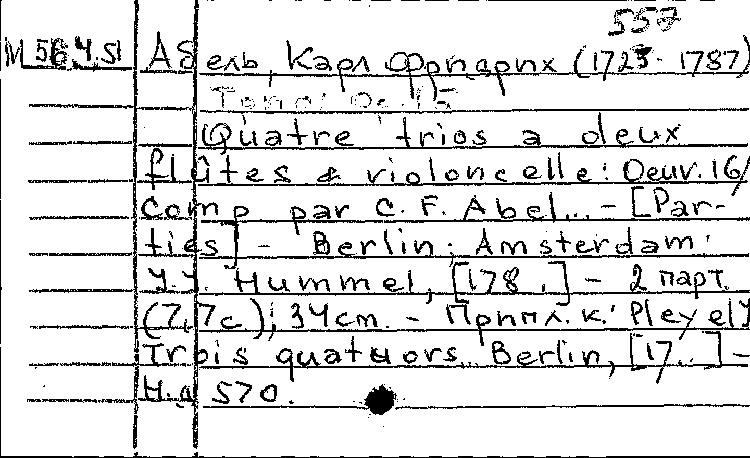 557
М 56.4.51 Абель, Карл Фридрих (1723-1787)
Quatre trios a deux
flûtes & violoncelle: Oeuv. 16/
comp par C. F. Abel... - [Par-
ties] - Berlin; Amsterdam:
J.J. Hummel, [178 .] - 2 парт.
(7,7с); 34cm. - Припл. к: Pleyel J
Trois quatuors... Berlin, [17..] -
Н.д 570.